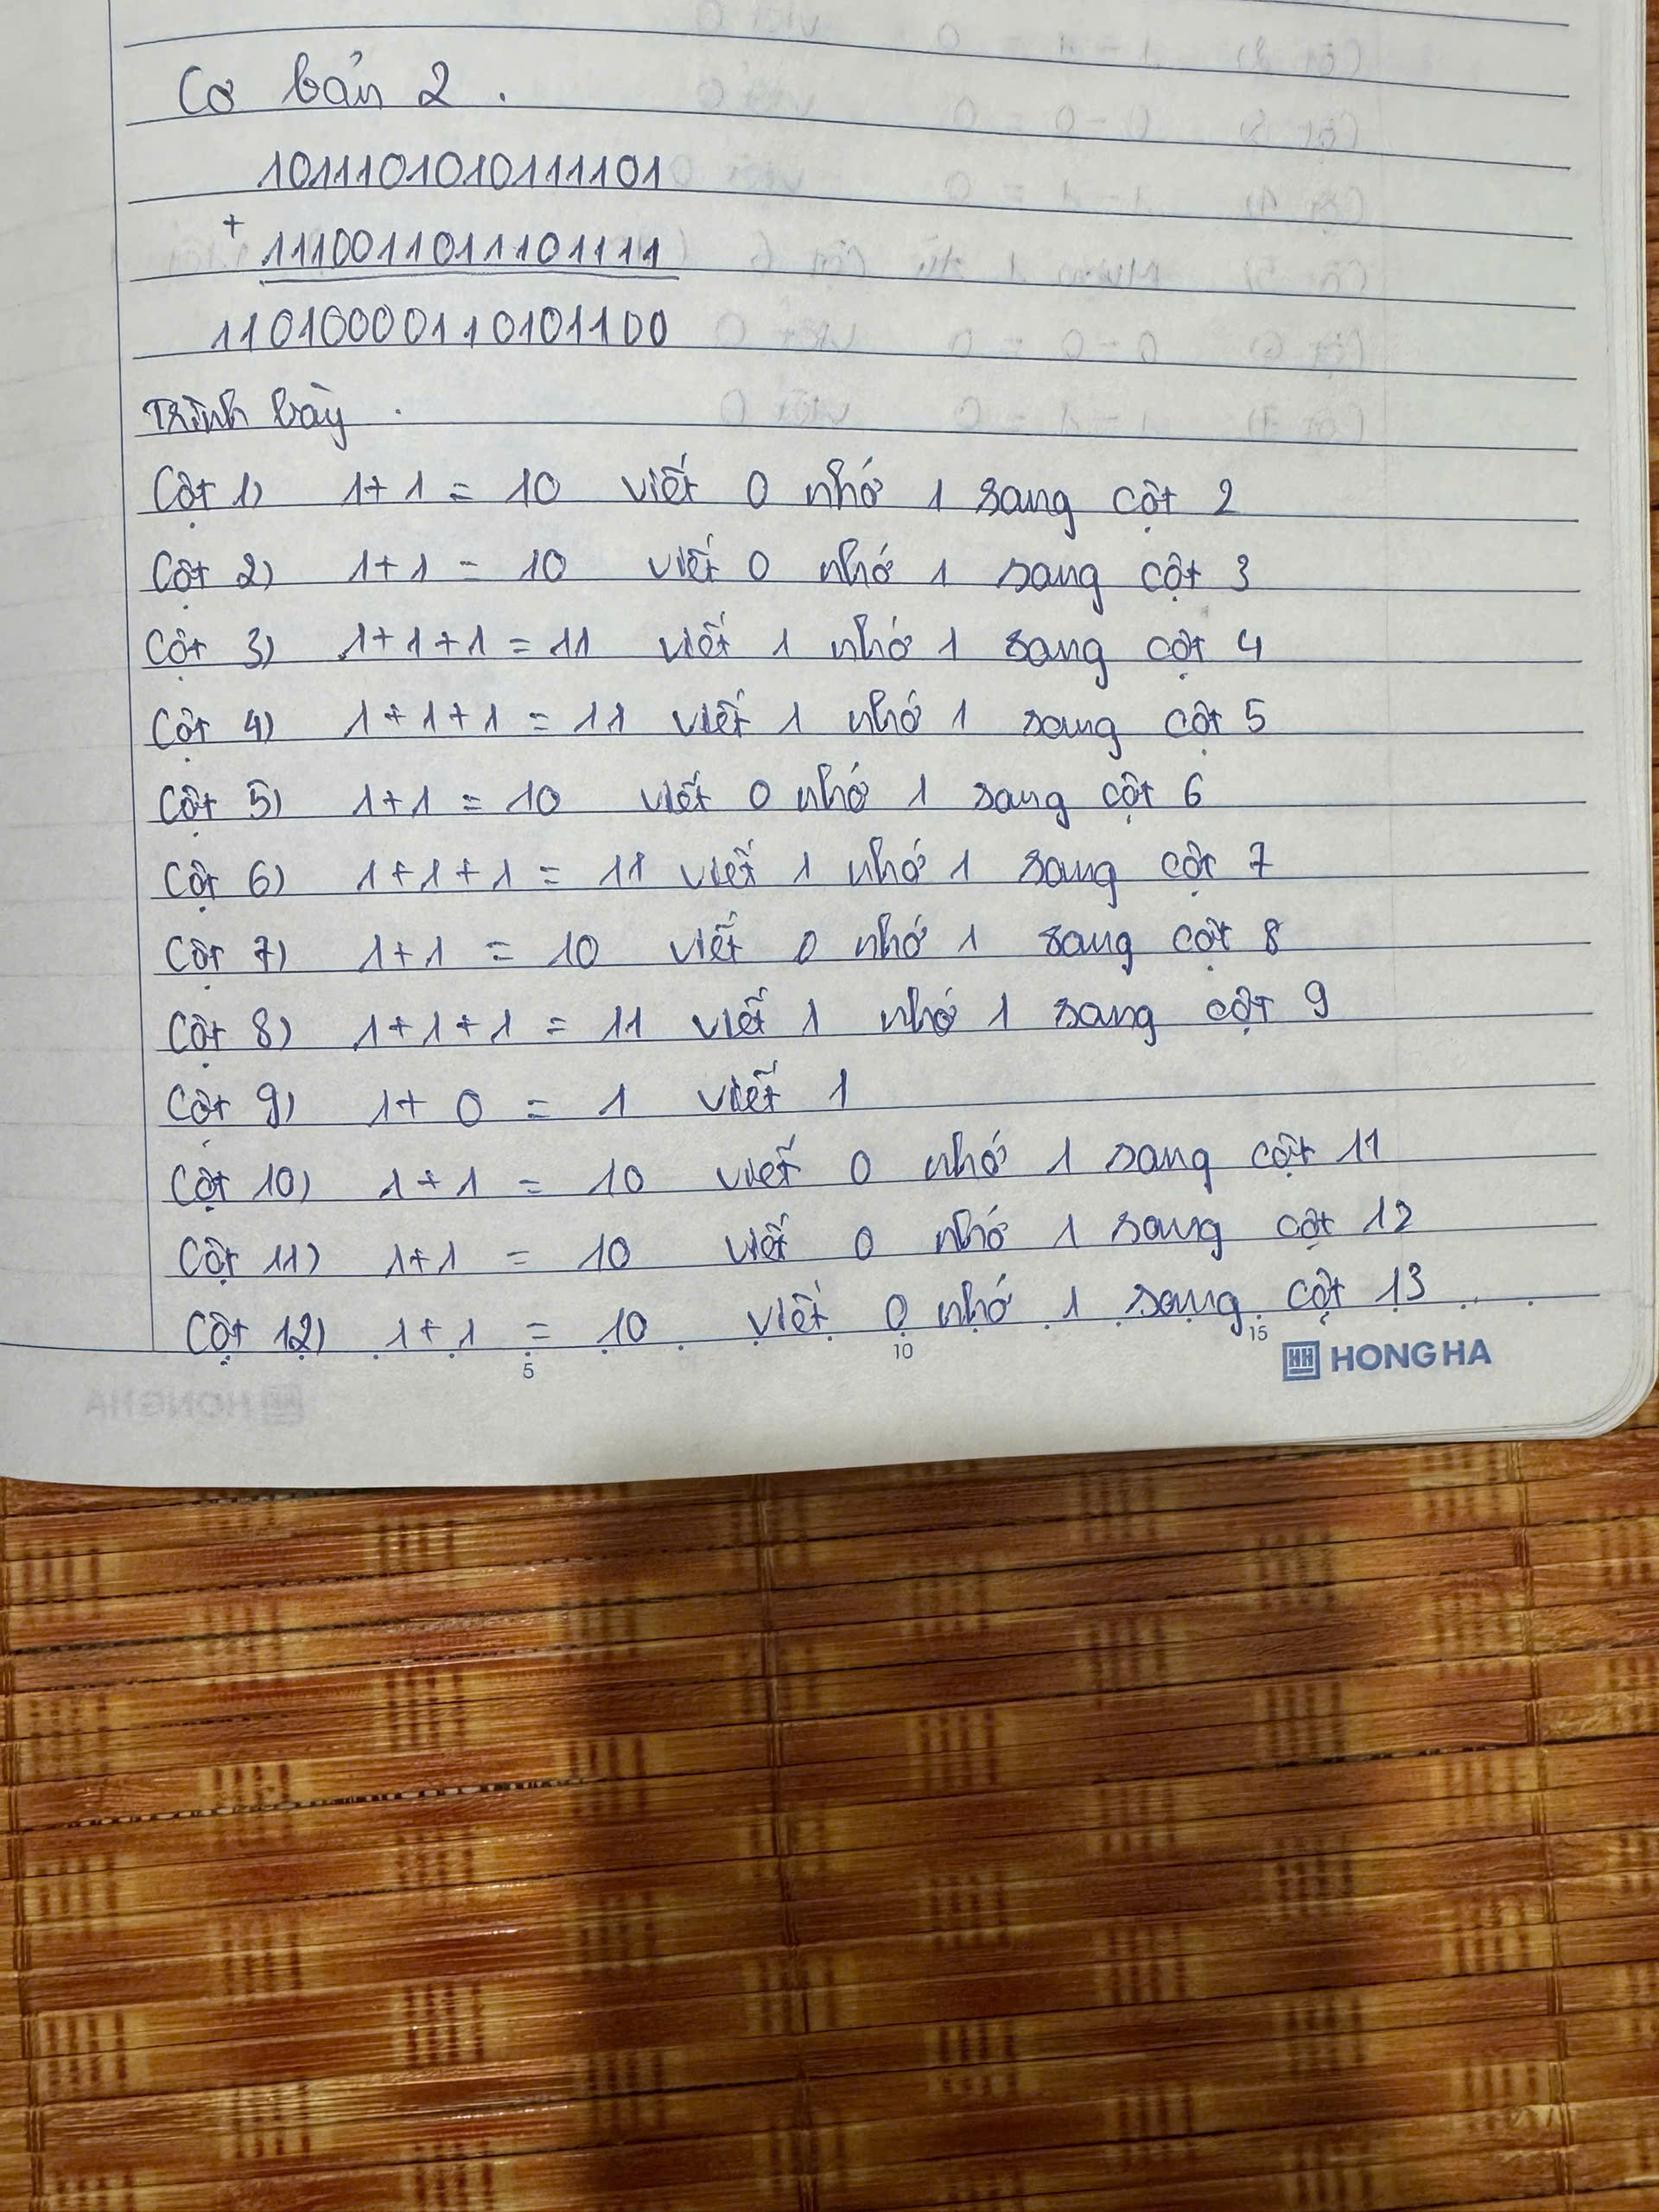 Cơ bản 2 .
1011101010111101
+
1110011011101111
11010000110101100
Trình bày .
Cột 1) 1+1 = 10 viết 0 nhớ 1 sang cột 2
Cột 2) 1+1 = 10 viết 0 nhớ 1 sang cột 3
Cột 3) 1+1+1 = 11 viết 1 nhớ 1 sang cột 4
Cột 4) 1+1+1 = 11 viết 1 nhớ 1 sang cột 5
Cột 5) 1+1 = 10 viết 0 nhớ 1 sang cột 6
Cột 6) 1+1+1 = 11 viết 1 nhớ 1 sang cột 7
Cột 7) 1+1 = 10 viết 0 nhớ 1 sang cột 8
Cột 8) 1+1+1 = 11 viết 1 nhớ 1 sang cột 9
Cột 9) 1+0 = 1 viết 1
Cột 10) 1+1 = 10 viết 0 nhớ 1 sang cột 11
Cột 11) 1+1 = 10 viết 0 nhớ 1 sang cột 12
Cột 12) 1+1 = 10 viết 0 nhớ 1 sang cột 13
5 10 15
HH HONG HA